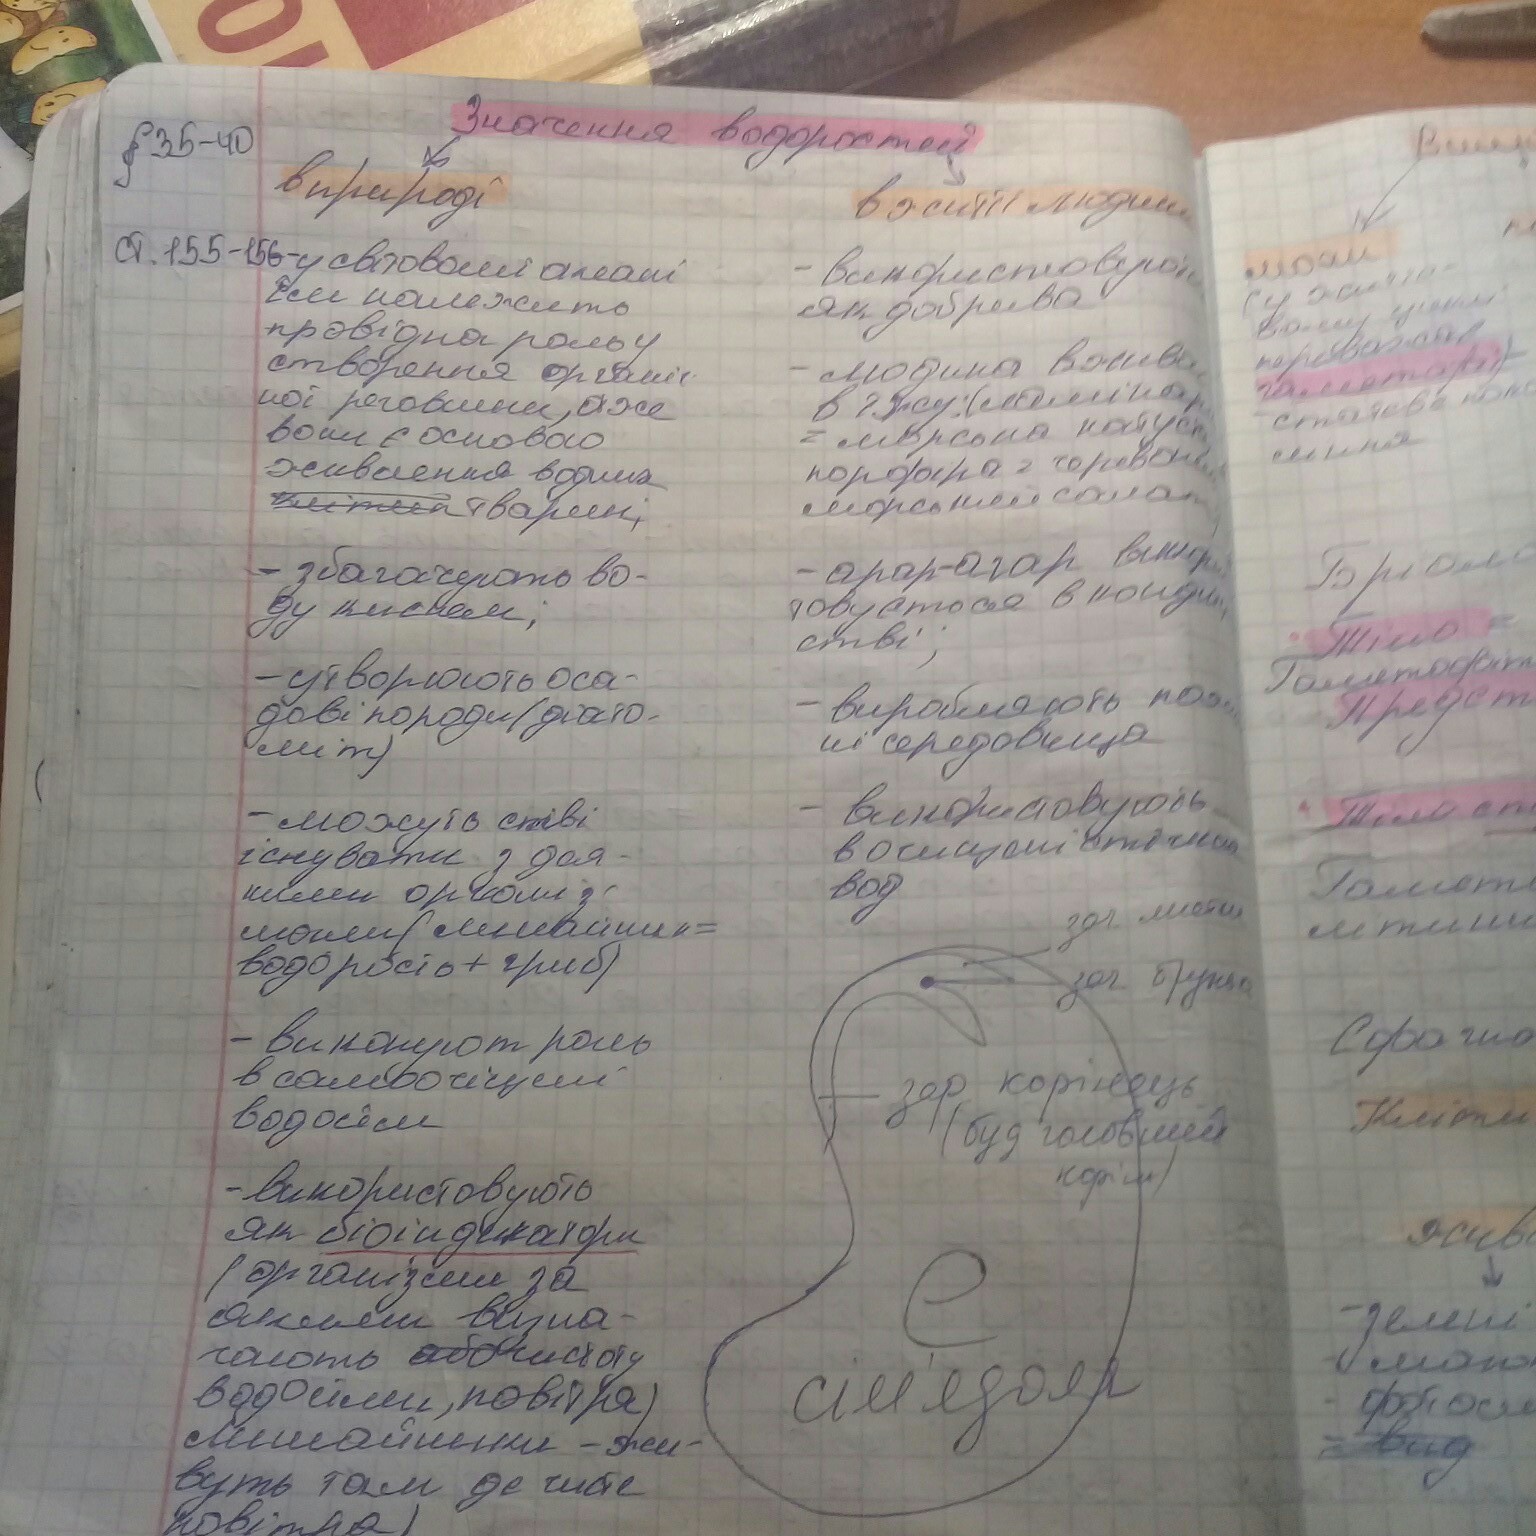 § 35-40
Значення водоростей
в природі
ст. 155-156
- у світовому океані
їм належить
провідна роль у
створення органіч
ної речовини, адже
вони є основою
живлення водних
тварин;
- збагачують во-
ду киснем;
- утворюють оса-
дові породи (діато-
міт)
- можуть спів
існувати з дея-
кими organіз
мами (лишайник =
водорость + гриб)
- виконують роль
в самоочищені
водойм
- використовують
як біоіндикатори
(організми за
якими визна-
чають чистоту
водойми, повітря)
Лишайники - жи-
вуть там де чисте
повітря)
в житті людини
- використовують
як добрива
- людина вжива
в їжу: (ламінарі
= морська капуст
порфіра = червоний
морський салат
- агар-агар викори
товується в кондит
стві;
- виробляють пожи
ні середовища
- використовують
в очищені стічних
вод
зач листки
зач брунька
зар корінець
(буд головний
корінь)
Є
сім'ядоля
мохи
(у життє-
вому циклі
переважає
гаметофіт)
статеве поко
ління
Тіло =
Гаметофіт
Предст
Тіло
Сфагно
Кліти
жив
- зелені